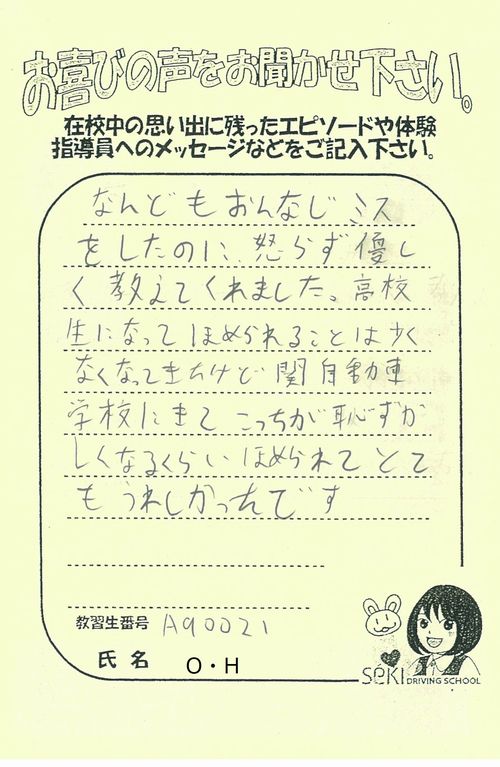 お喜びの声をお聞かせ下さい。
在校中の思い出に残ったエピソードや体験
指導員へのメッセージなどをご記入下さい。
なんどもおんなじミス
をしたのに、怒らず優し
く教えてくれました。高校
生になってほめられることは少く
なくなってきたけど関自動車
学校にきてこっちが恥ずか
しくなるくらいほめられてとて
もうれしかったです
教習生番号 A90021
氏名 O・H
SeKI DRIVING SCHOOL